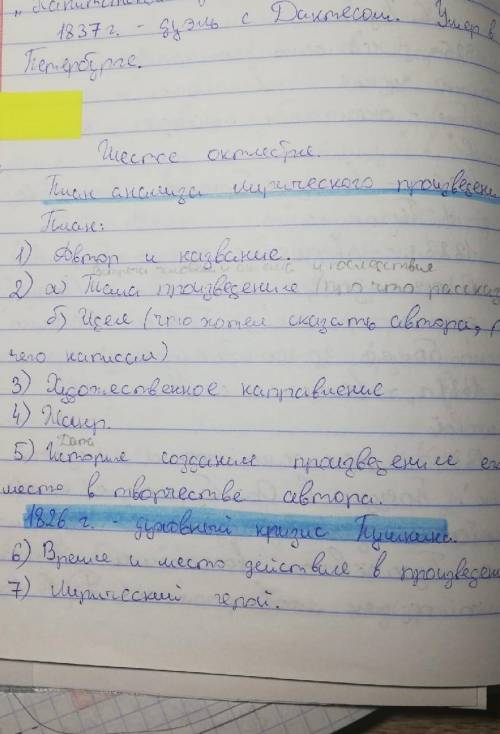 1837 г. - дуэль с Дантесом. Умер в
Петербурге.
Шестое октября.
План анализа лирического произведени
План:
1) Автор и название.
2) а) Тема произведение (про что рассказ
б) Идея (что хотел сказать автора,
чего написал)
3) Художественное направление
4) Жанр.
Дата
5) История создание произведение ег
место в творчестве автора.
1826 г. - духовный кризис Пушкина.
6) Время и место действие в произведен
7) Лирический герой.